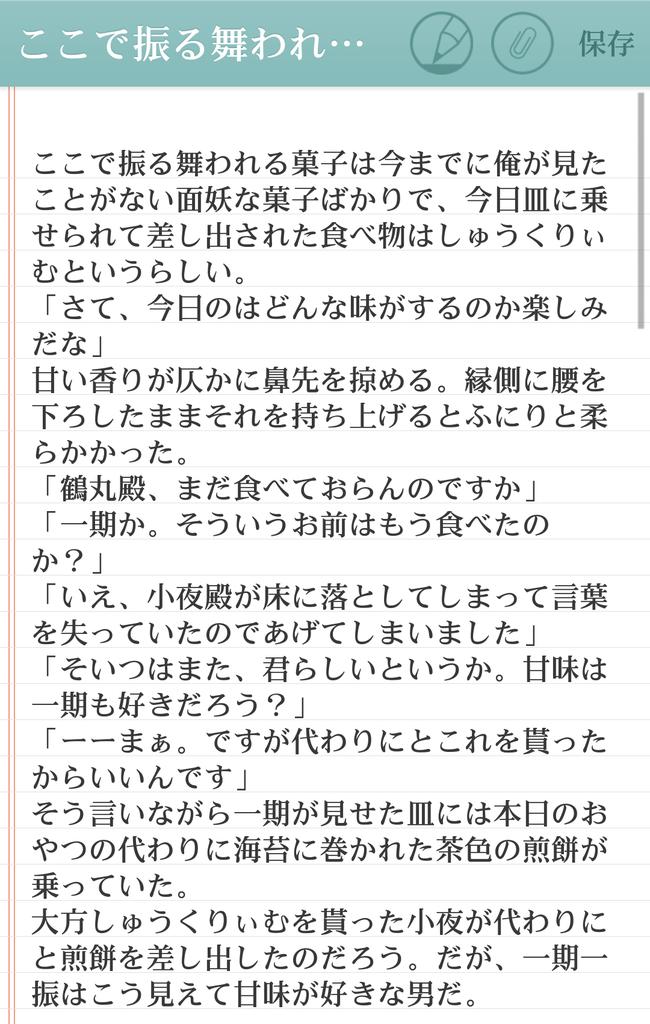 ここで振る舞われ…
保存
ここで振る舞われる菓子は今までに俺が見た
ことがない面妖な菓子ばかりで、今日皿に乗
せられて差し出された食べ物はしゅうくりぃ
むというらしい。
「さて、今日のはどんな味がするのか楽しみ
だな」
甘い香りが仄かに鼻先を掠める。縁側に腰を
下ろしたままそれを持ち上げるとふにりと柔
らかかった。
「鶴丸殿、まだ食べておらんのですか」
「一期か。そういうお前はもう食べたの
か？」
「いえ、小夜殿が床に落としてしまって言葉
を失っていたのであげてしまいました」
「そいつはまた、君らしいというか。甘味は
一期も好きだろう？」
「ーーまぁ。ですが代わりにとこれを貰った
からいいんです」
そう言いながら一期が見せた皿には本日のお
やつの代わりに海苔に巻かれた茶色の煎餅が
乗っていた。
大方しゅうくりぃむを貰った小夜が代わりに
と煎餅を差し出したのだろう。だが、一期一
振はこう見えて甘味が好きな男だ。